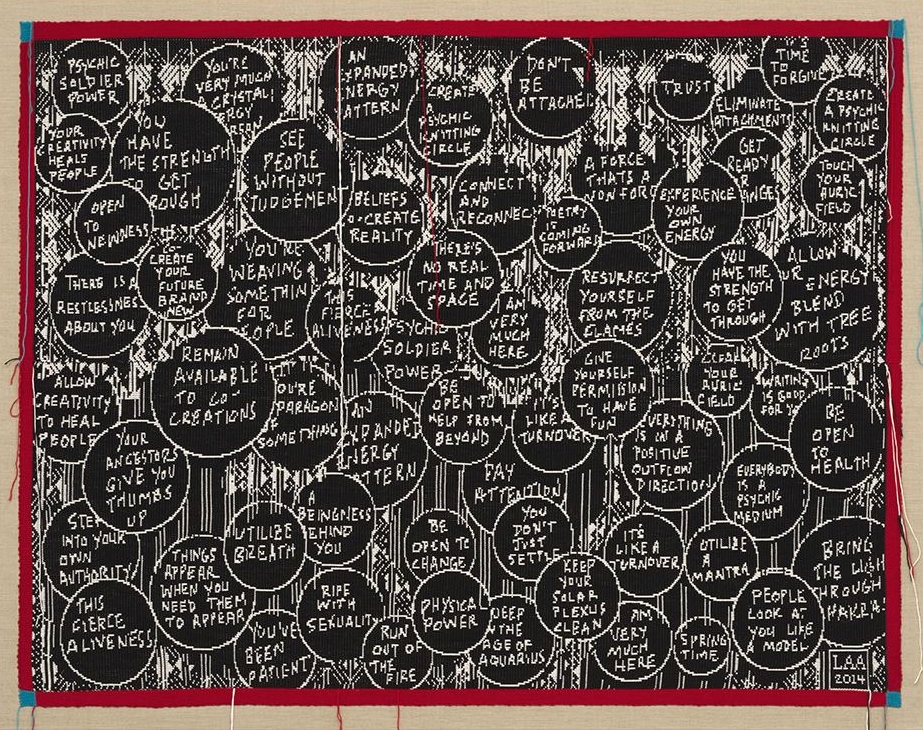 PSYCHIC
SOLDIER
POWER
YOU'RE
VERY MUCH
A CRYSTAL
AN
EXPANDED
ENERGY
PATTERN
CREATE
PSYCHIC
KNITTING
CIRCLE
DON'T
BE
ATTACHED
TRUST
TIME
TO
FORGIVE
ELIMINATE
ATTACHMENTS
CREATE
A PSYCHIC
KNITTING
CIRCLE
YOUR
CREATIVITY
HEALS
PEOPLE
YOU
HAVE
THE STRENGTH
TO GET
ROUGH
SEE
PEOPLE
WITHOUT
JUDGEMENT
BELIEFS
CO-CREATE
REALITY
CONNECT
AND
RECONNECT
A FORCE
THATS A
NON FORCE
GET
READY
TOUCH
YOUR
AURIC
FIELD
EXPERIENCE
YOUR
OWN
ENERGY
POETRY
IS
COMING
FORWARD
OPEN
TO
NEWNESS
CO-
CREATE
YOUR
FUTURE
BRAND
NEW
THERE IS A
RESTLESSNESS
ABOUT YOU
YOU'RE
WEAVING
SOMETHING
FOR
THIS
FIERCE
ALIVENESS
THERE'S
NO REAL
TIME AND
SPACE
PSYCHIC
SOLDIER
POWER
I AM
VERY
MUCH
HERE
RESURRECT
YOURSELF
FROM THE
FLAMES
YOU
HAVE THE
STRENGTH
TO GET
THROUGH
ALLOW
ENERGY
BLEND
WITH TREE
ROOTS
ALLOW
CREATIVITY
TO HEAL
PEOPLE
REMAIN
AVAILABLE
TO CO-
CREATIONS
YOU'RE
PARAGON
SOMETHING
AN
EXPANDED
ENERGY
PATTERN
BE
OPEN TO
HELP FROM
BEYOND
IT'S
LIKE A
TURNOVER
GIVE
YOURSELF
PERMISSION
TO HAVE
FUN
CLEAN
YOUR
AURIC
FIELD
WRITING
IS GOOD
FOR YOU
BE
OPEN
TO
HEALTH
YOUR
ANCESTORS
GIVE YOU
THUMBS
UP
EVERYTHING
IS IN A
POSITIVE
OUTFLOW
DIRECTION
EVERYBODY
IS A
PSYCHIC
MEDIUM
PAY
ATTENTION
STEP
INTO YOUR
OWN
AUTHORITY
THINGS
APPEAR
WHEN YOU
NEED THEM
TO APPEAR
UTILIZE
BREATH
A
BEINGNESS
BEHIND
YOU
BE
OPEN TO
CHANGE
YOU
DON'T
JUST
SETTLE
IT'S
LIKE A
TURNOVER
UTILIZE
A
MANTRA
BRING
THE LIGHT
THROUGH
THIS
FIERCE
ALIVENESS
YOU'VE
BEEN
PATIENT
RIPE
WITH
SEXUALITY
RUN
OUT OF
THE
FIRE
PHYSICAL
POWER
DEEP
IN THE
AGE OF
AQUARIUS
KEEP
YOUR
SOLAR
PLEXUS
CLEAN
I AM
VERY
MUCH
HERE
SPRING
TIME
PEOPLE
LOOK AT
YOU LIKE
A MODEL
LAA
2014